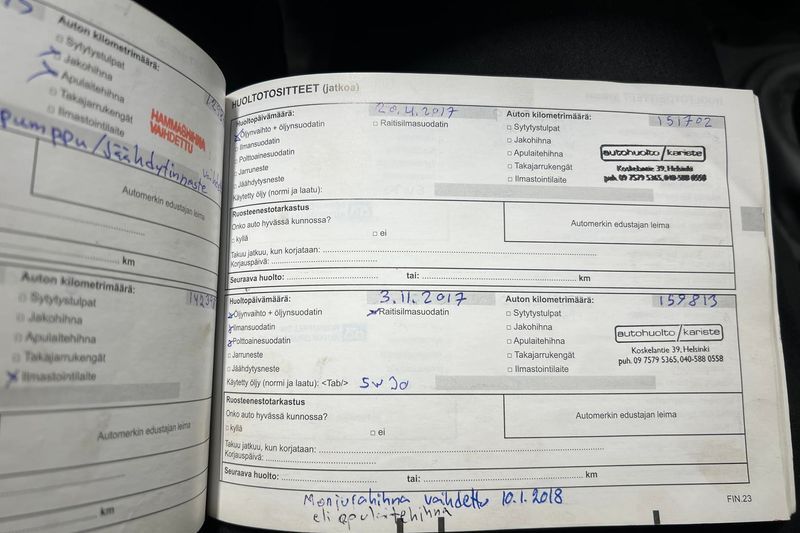 Auton kilometrimäärä:
Sytytystulpat
Jakohihna
Apulaitehihna
Takajarrukengät
Ilmastointilaite
HAMMASHIHNA
VAIHDETTU
pumppu/Jäähdytinnaste
Automerkin edustajan leima
km
Auton kilometrimäärä:
Sytytystulpat
Jakohihna
Apulaitehihna
Takajarrukengät
Ilmastointilaite
Automerkin edustajan leima
km
HUOLTOTOSITTEET (jatkoa)
Huoltopäivämäärä: 20.4.2017 Auton kilometrimäärä: 151702
Öljynvaihto + öljynsuodatin Raitisilmasuodatin Sytytystulpat
Ilmansuodatin Jakohihna
Polttoainesuodatin Apulaitehihna autohuolto/kariste
Jarruneste Takajarrukengät Koskelantie 39, Helsinki
Jäähdytysneste Ilmastointilaite puh. 09 7579 5365, 040-588 0558
Käytetty öljy (normi ja laatu):
Ruosteenestotarkastus
Onko auto hyvässä kunnossa? Automerkin edustajan leima
kyllä ei
Takuu jatkuu, kun korjataan:
Korjauspäivä:
Seuraava huolto: tai: km
Huoltopäivämäärä: 3.11.2017 Auton kilometrimäärä: 159813
Öljynvaihto + öljynsuodatin Raitisilmasuodatin Sytytystulpat
Ilmansuodatin Jakohihna autohuolto/kariste
Polttoainesuodatin Apulaitehihna
Jarruneste Takajarrukengät Koskelantie 39, Helsinki
Jäähdytysneste Ilmastointilaite puh. 09 7579 5365, 040-588 0558
Käytetty öljy (normi ja laatu): <Tab/> 5w30
Ruosteenestotarkastus
Onko auto hyvässä kunnossa? Automerkin edustajan leima
kyllä ei
Takuu jatkuu, kun korjataan:
Korjauspäivä:
Seuraava huolto: tai: km
Moniurahihna vaihdettu 10.1.2018
eli apulaitehihna
FIN.23